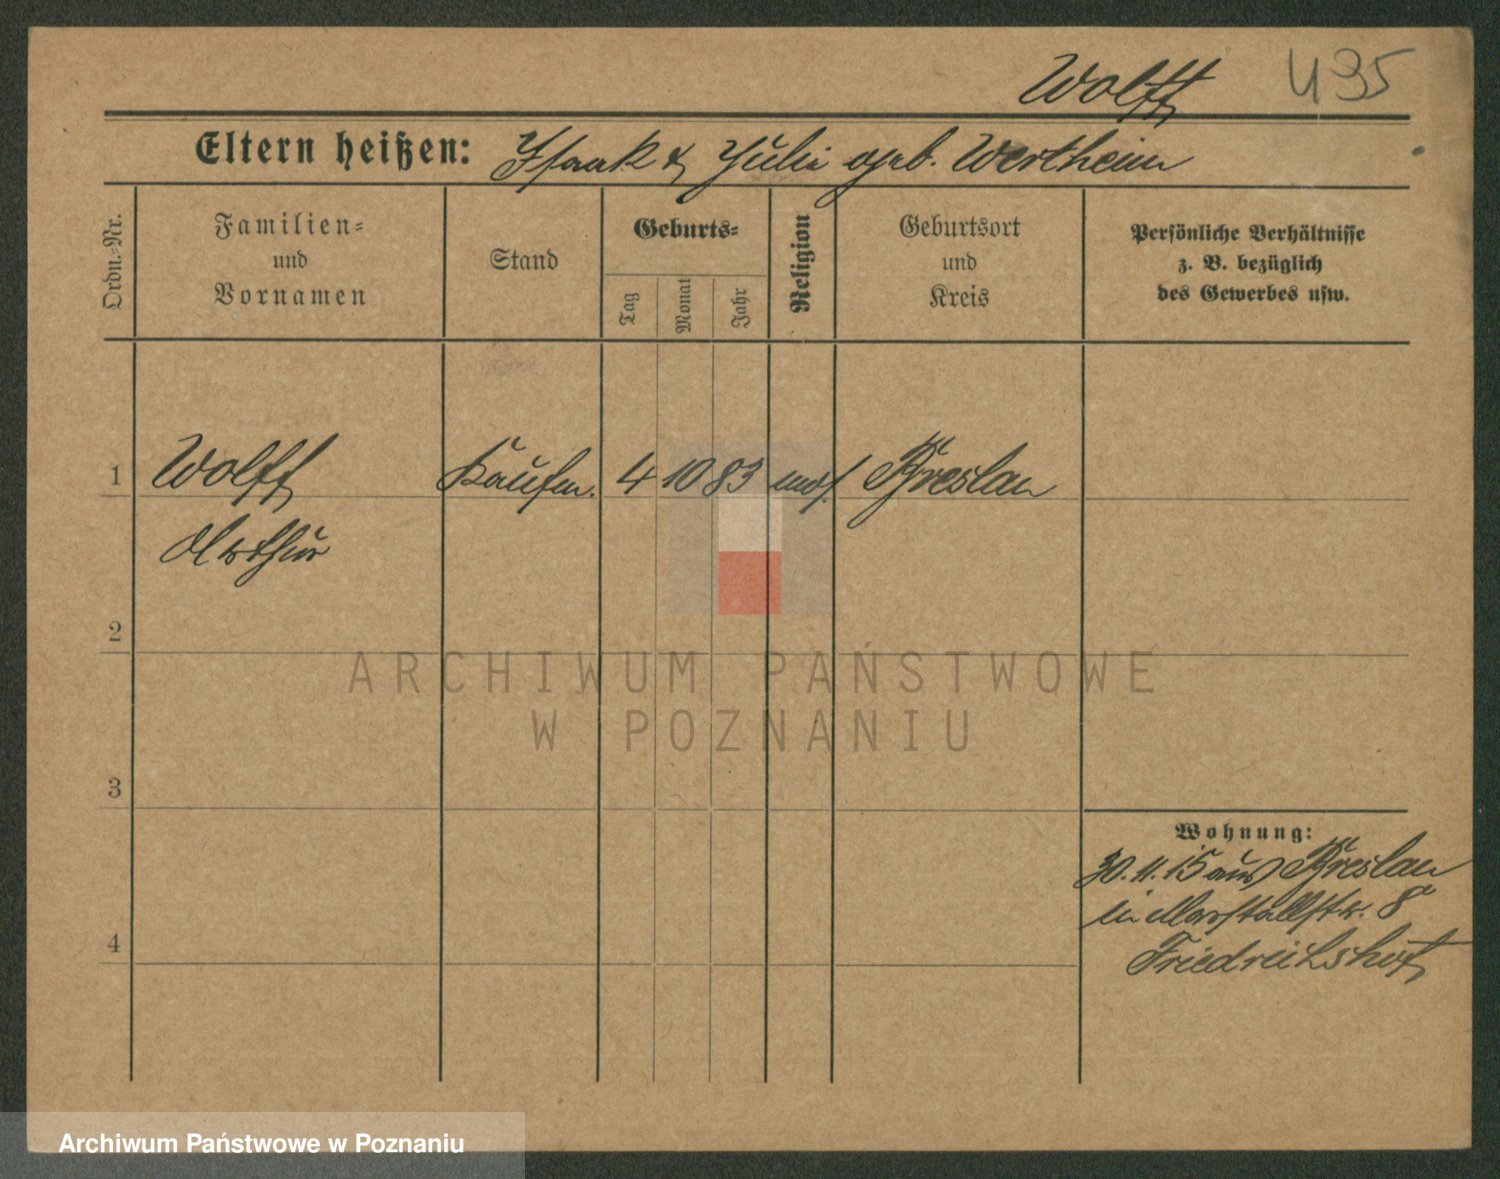 Wolff 435
Eltern heißen: Isaak & Julie geb. Wertheim
Ordn.-Nr.
Familien-
und
Vornamen
Stand
Geburts-
Tag
Monat
Jahr
Religion
Geburtsort
und
Kreis
Persönliche Verhältnisse
z. B. bezüglich
des Gewerbes usw.
1 Wolff Kaufm. 4 10 83 mos. Breslau
Arthur
2
3
4
Wohnung:
30.11.15 aus Breslau
in Marstallstr. 8
Friedrichshof
ARCHIWUM PAŃSTWOWE
W POZNANIU
Archiwum Państwowe w Poznaniu